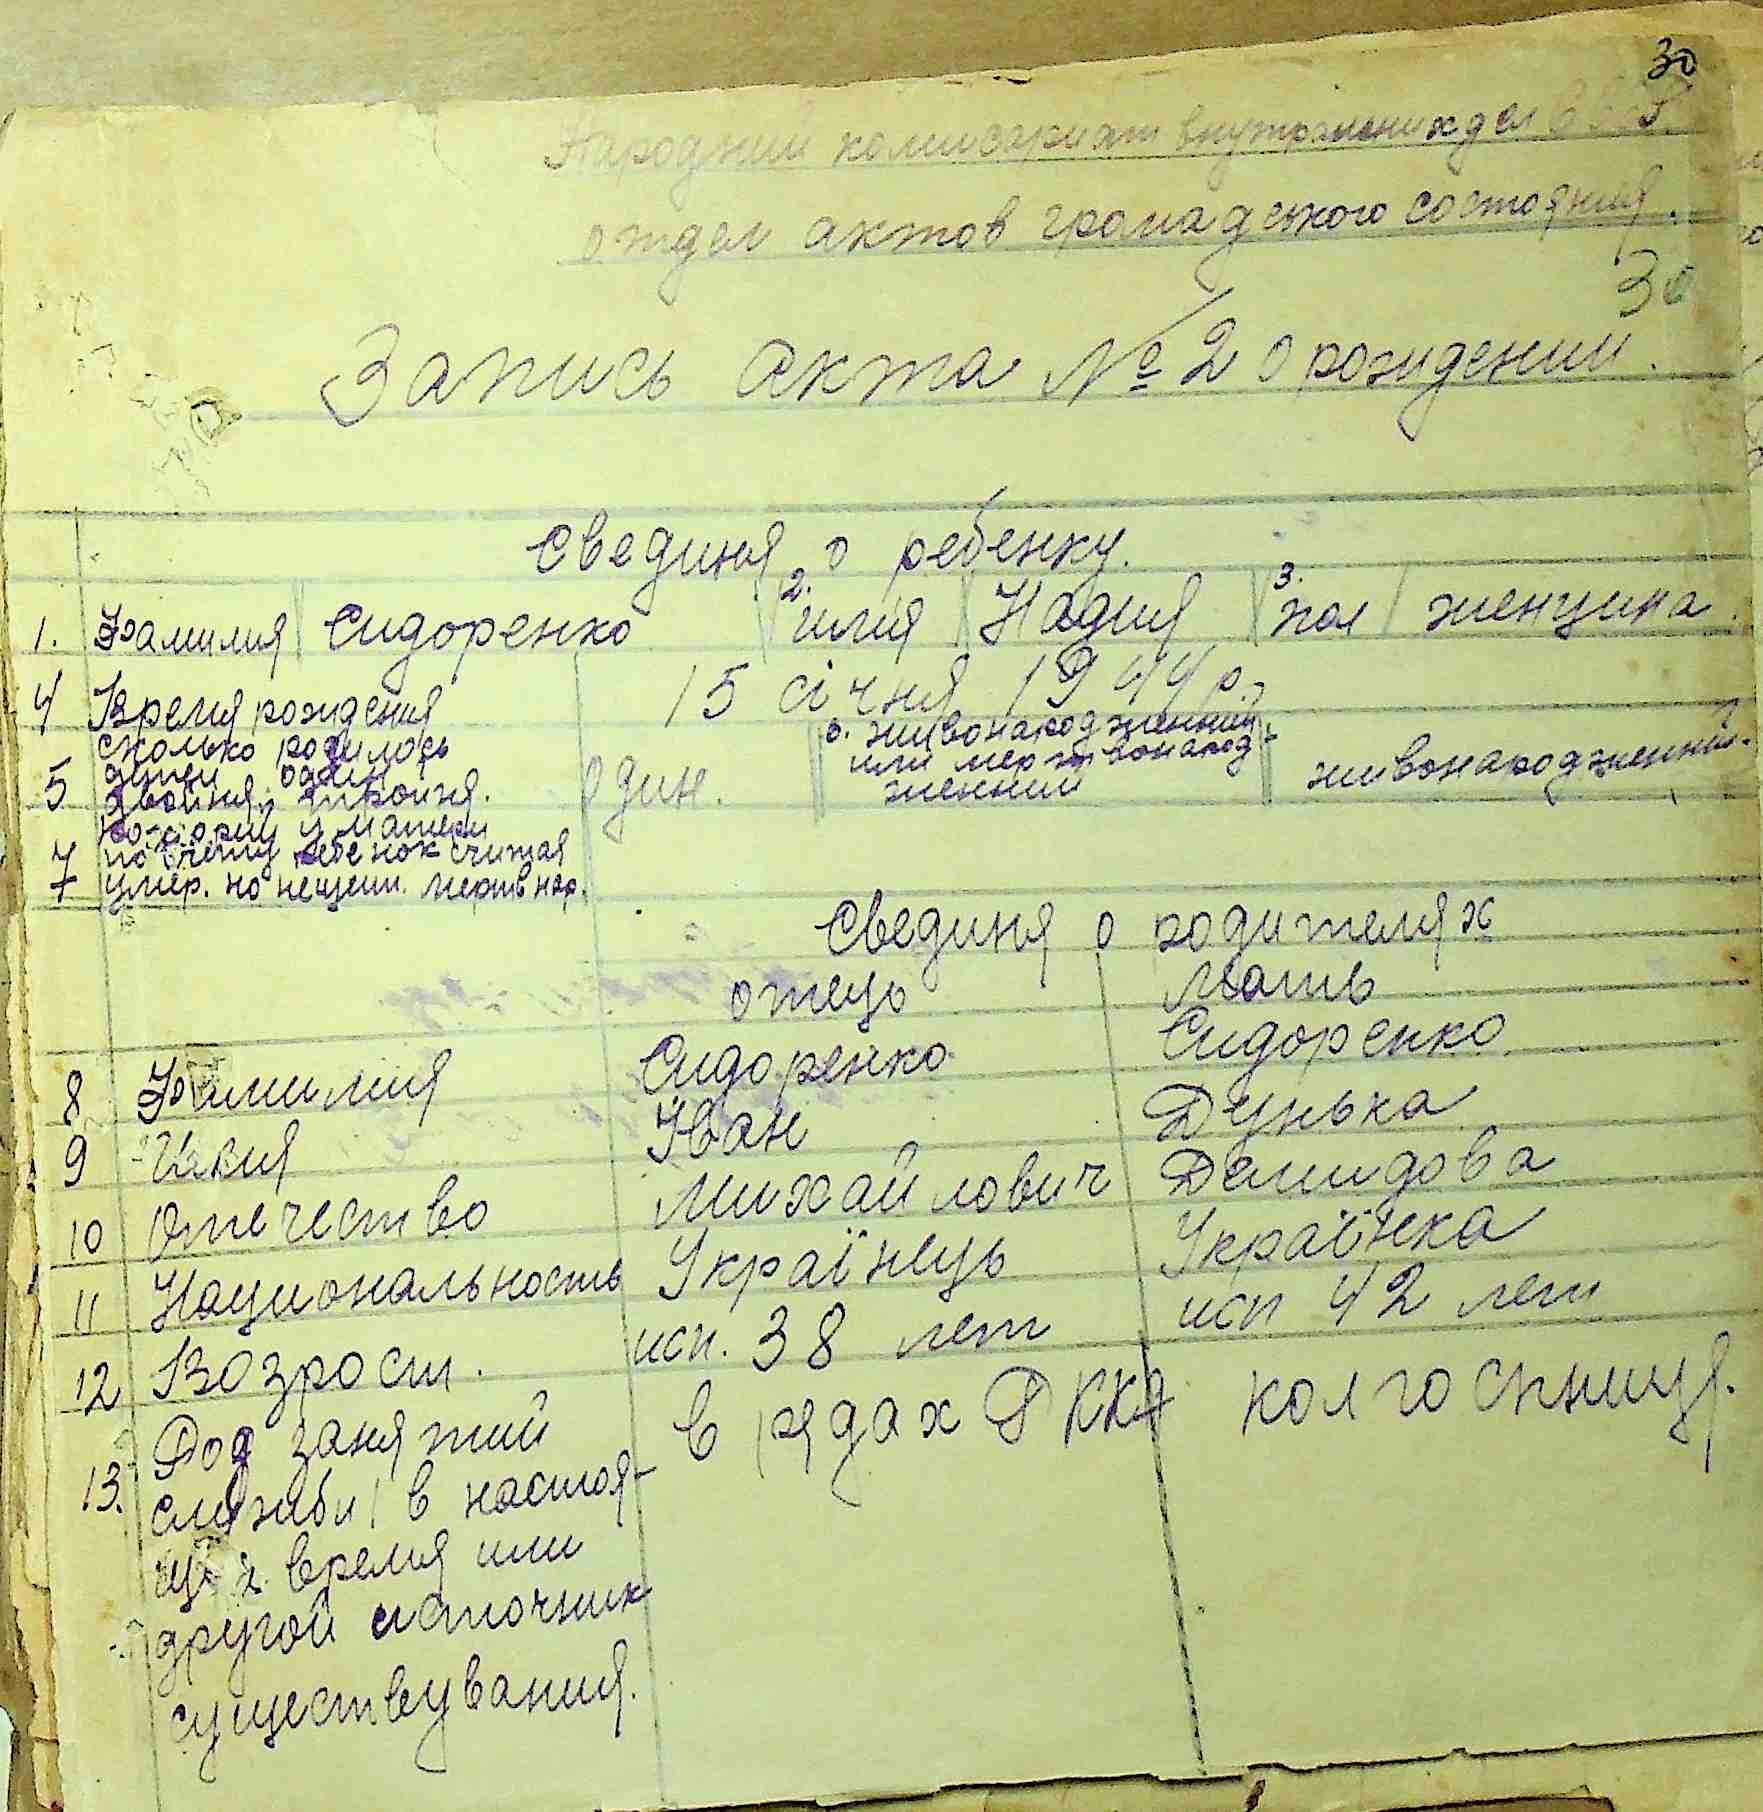 30
Народний комисариат внутрених дел СССР.
отдел актов громадського состояния.
30
Запись акта № 2 о рождении.
Свединя о ребенку.
1. Фамилия Сидоренко 2. имя Надия 3. пол женщина.
4 Время рождения 15 січня 1944 р.
5 сколько родилось
детей один
двойня, тройня. один.
6. живонародженний
или мертвонарод
женний живонародженний.
7 по счету ребенок считая
умер. но не мертвнар.
Свединя о родителях
отець Мать
8 Фамилия Сидоренко Сидоренко
9 Имия Іван Дунька
10 Отечество Михайлович Демидова
11 Национальность Українець Українка
12 Возрост. исп. 38 лет исп 42 лет
13. Род занятий в рядах РККА колгоспниця.
служби в настоя-
щ. время или
другой источник
существувания.